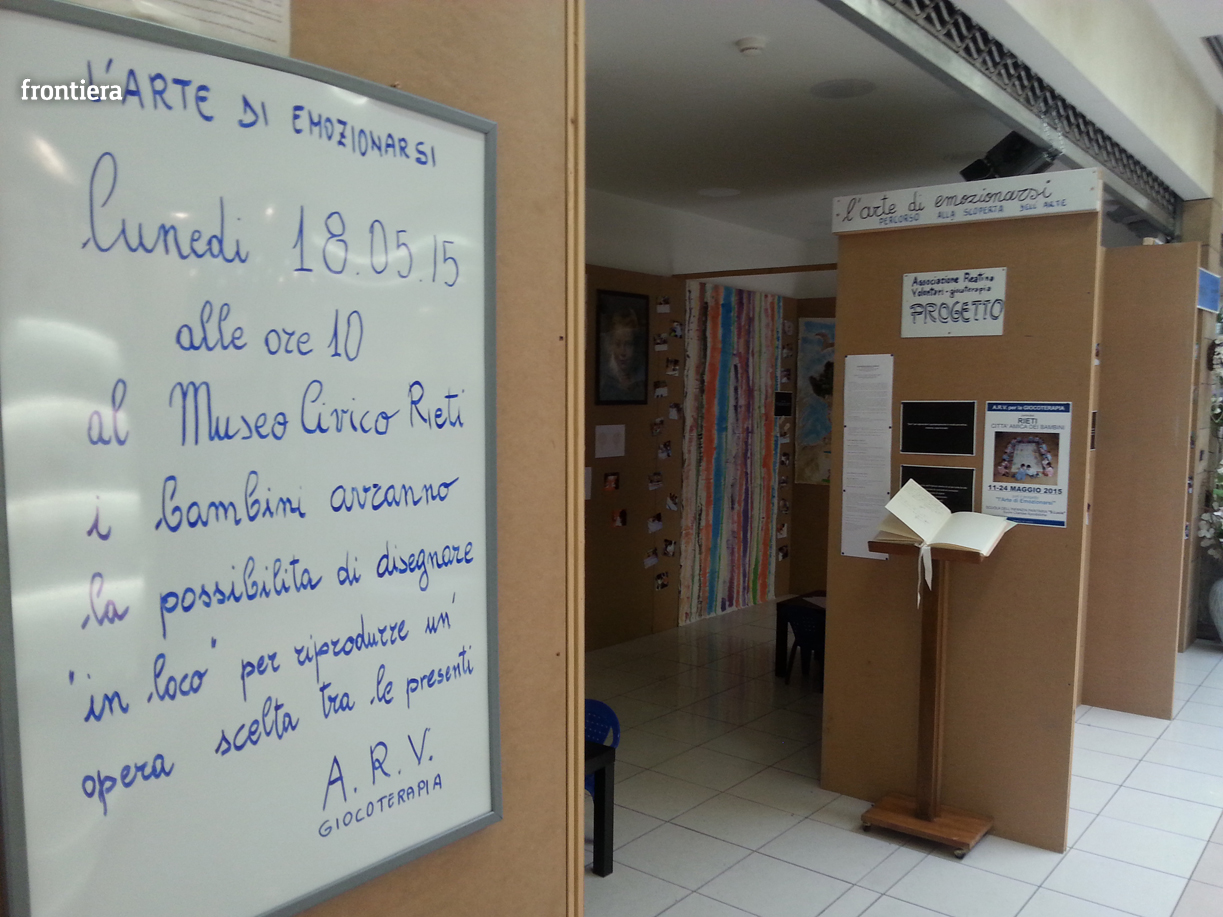 frontiera
L'ARTE DI EMOZIONARSI
Lunedi 18.05.15
alle ore 10
al Museo Civico Rieti
i bambini avranno
la possibilita di disegnare
"in loco" per riprodurre un'
opera scelta tra le presenti
A. R. V.
GIOCOTERAPIA
l'arte di emozionarsi
PERCORSO ALLA SCOPERTA DELL'ARTE
Associazione Reatina
Volontari-giocoterapia
PROGETTO
A.R.V. per la GIOCOTERAPIA
RIETI
CITTA' AMICA DEI BAMBINI
11-24 MAGGIO 2015
"l'Arte di Emozionarsi"